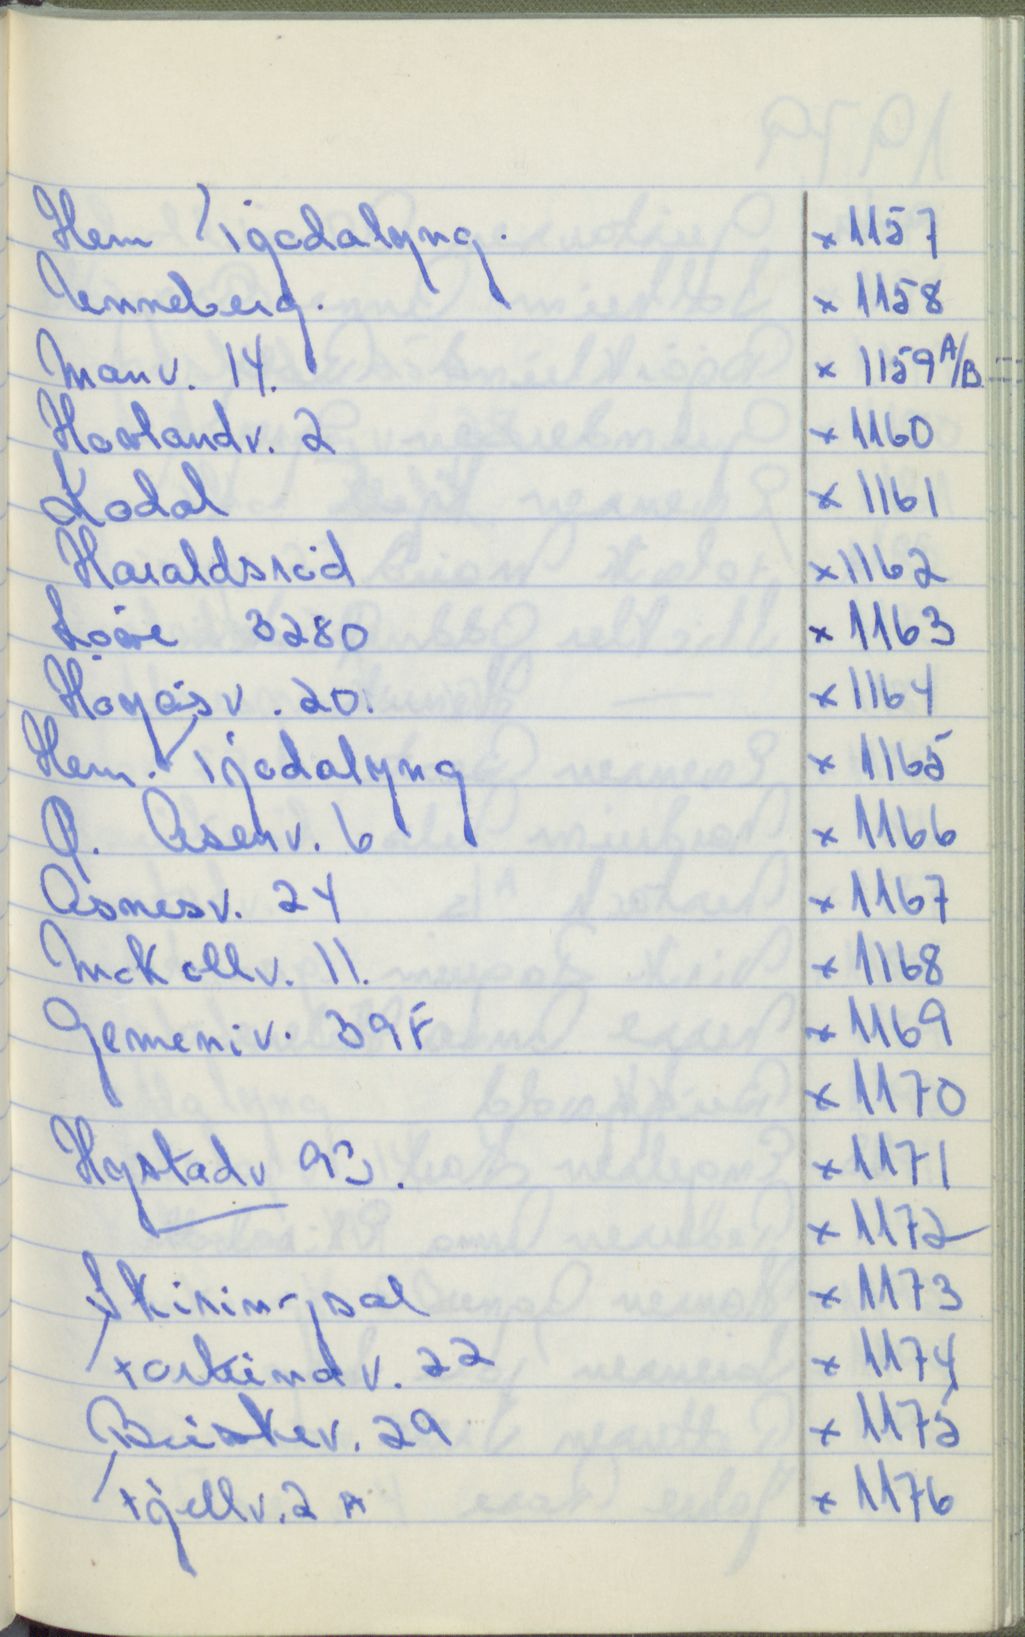 Hem Fjodalyng. x 1157
Unneberg. x 1158
Manv. 14. x 1159 A/B
Hovlandv. 2 x 1160
Kodal x 1161
Haraldsrød x 1162
3280 x 1163
Høyåsv. 20. x 1164
Hem. Fjodalyng x 1165
P. Åsenv. 6 x 1166
Åsnesv. 24 x 1167
Mokollv. 11. x 1168
Gemeniv. 39F x 1169
x 1170
Hystadv 93. x 1171
x 1172
Skiringsal x 1173
v. 22 x 1174
29 x 1175
Fjellv. 2A x 1176